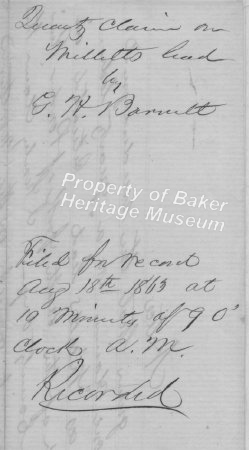 Quartz Claim on
Milletts lead
by
G. H. Barnett
Property of Baker
Heritage Museum
Filed for record
Aug 18th 1863 at
10 Minutes of 9 O'
clock A.M.
Recorded